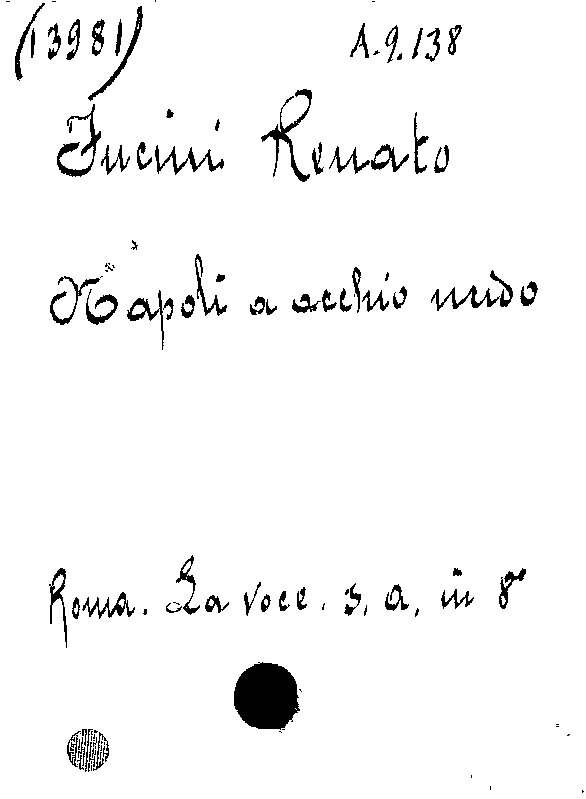 (13981) A.9.138
Fucini Renato
Napoli a occhio nudo
Roma. La voce. s. a. in 8°